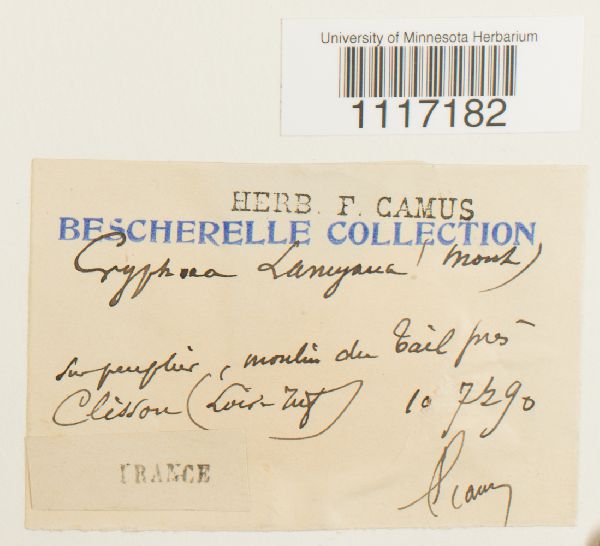 University of Minnesota Herbarium
1117182
HERB. F. CAMUS
BESCHERELLE COLLECTION
Cryphaea Lamyana (Mont)
sur peuplier, moulin du Tail près
Clisson (Loire Inf) 10 7bre 90
FRANCE
F Camus